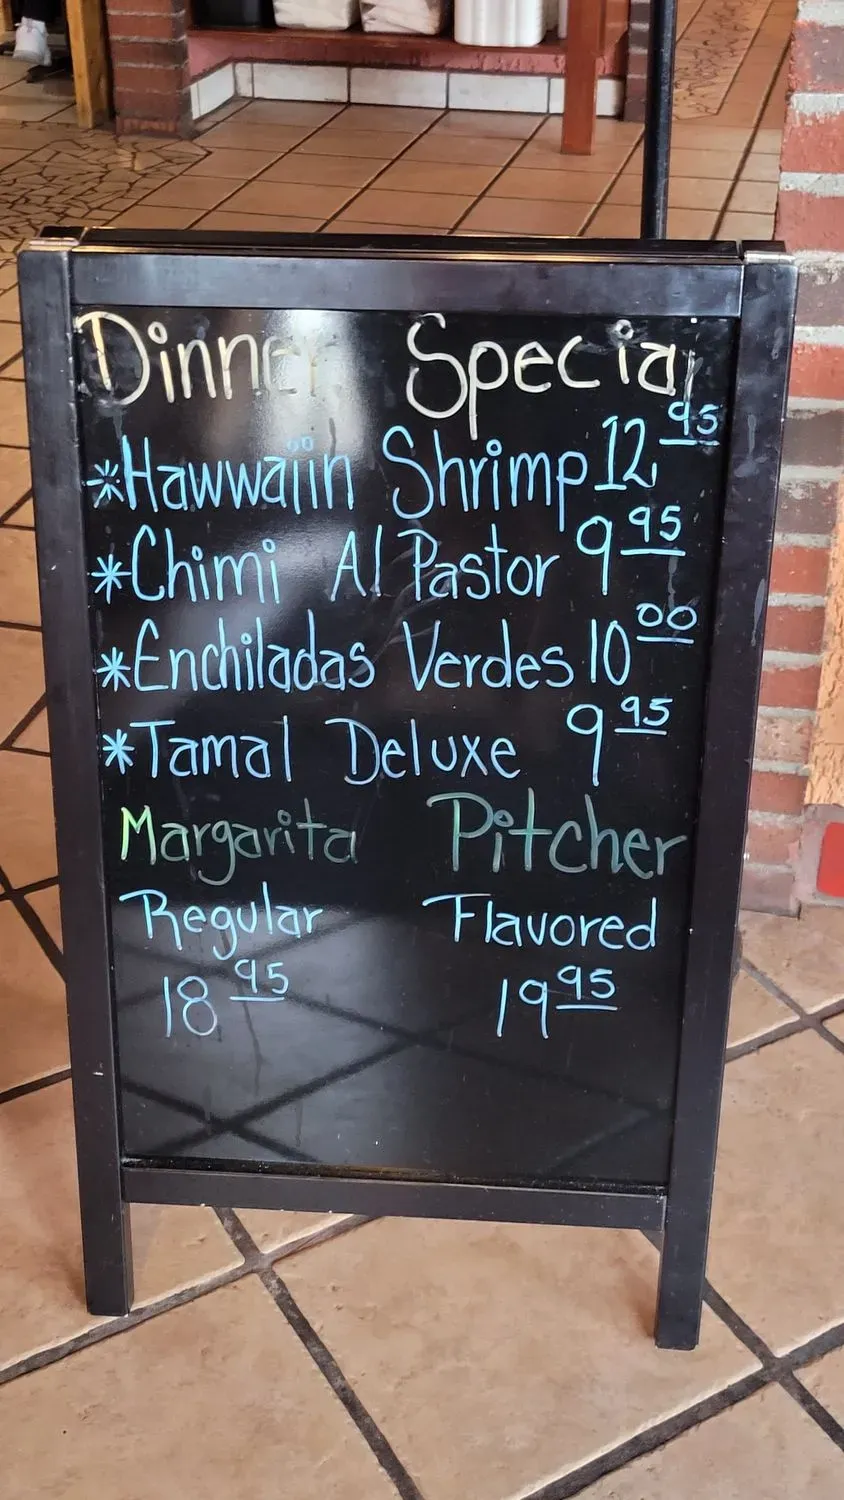 Dinner Special
*Hawwaiin Shrimp 12 95
*Chimi Al Pastor 9 95
*Enchiladas Verdes 10 00
*Tamal Deluxe 9 95
Margarita Pitcher
Regular Flavored
18 95 19 95